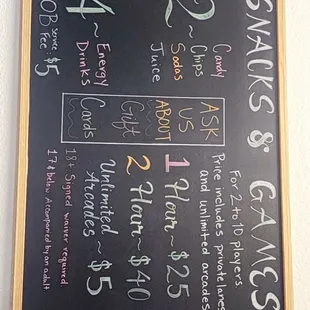 SNACKS & GAMES
Candy
2 ~ Chips
Sodas
Juice
4 ~ Energy
Drinks
OB Service
Fee: $5
ASK
US
ABOUT
Gift
Cards
For 2 to 10 players.
Price includes private lanes
and unlimited arcades
1 Hour ~ $25
2 Hour ~ $40
Unlimited
Arcades ~ $5
18+ Signed waiver required.
17 & below Accompanied by an adult